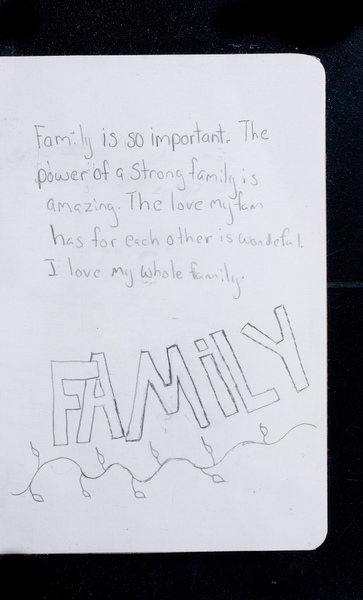 Family is so important. The
power of a strong family is
amazing. The love my fam
has for each other is wondeful.
I love my whole family.
FAMiLY